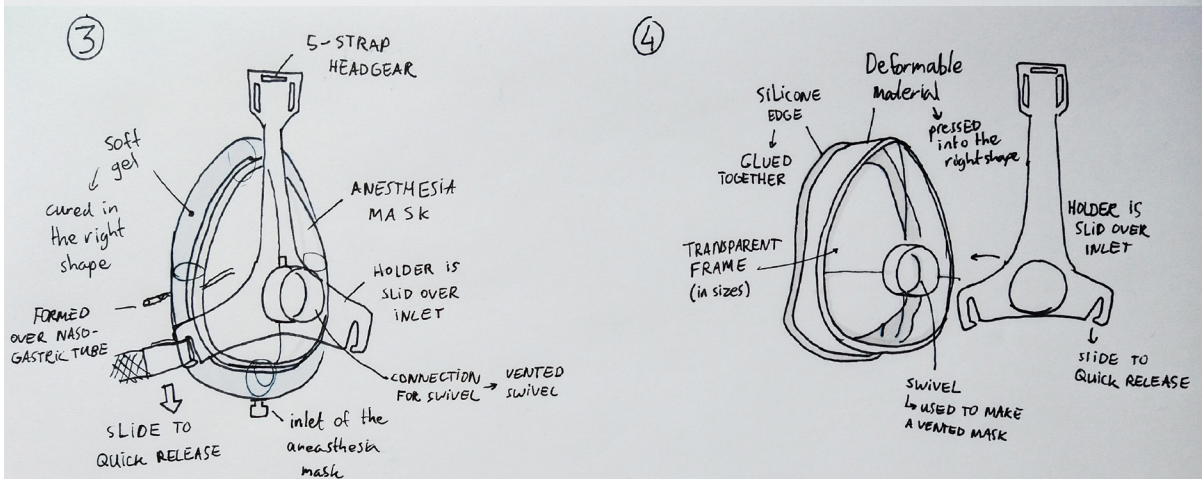 3
5-STRAP
HEADGEAR
Soft
gel
cured in
the right
shape
ANESTHESIA
MASK
HOLDER IS
SLID OVER
INLET
FORMED
OVER NASO-
GASTRIC TUBE
CONNECTION
FOR SWIVEL → VENTED
SWIVEL
SLIDE TO
QUICK RELEASE
inlet of the
aneasthesia
mask
4
Deformable
material
pressED
into the
right shape
SILICONE
EDGE
GLUED
TOGETHER
TRANSPARENT
FRAME
(in sizes)
HOLDER IS
SLID OVER
INLET
SLIDE TO
QUICK RELEASE
SWIVEL
↳ USED TO MAKE
A VENTED MASK